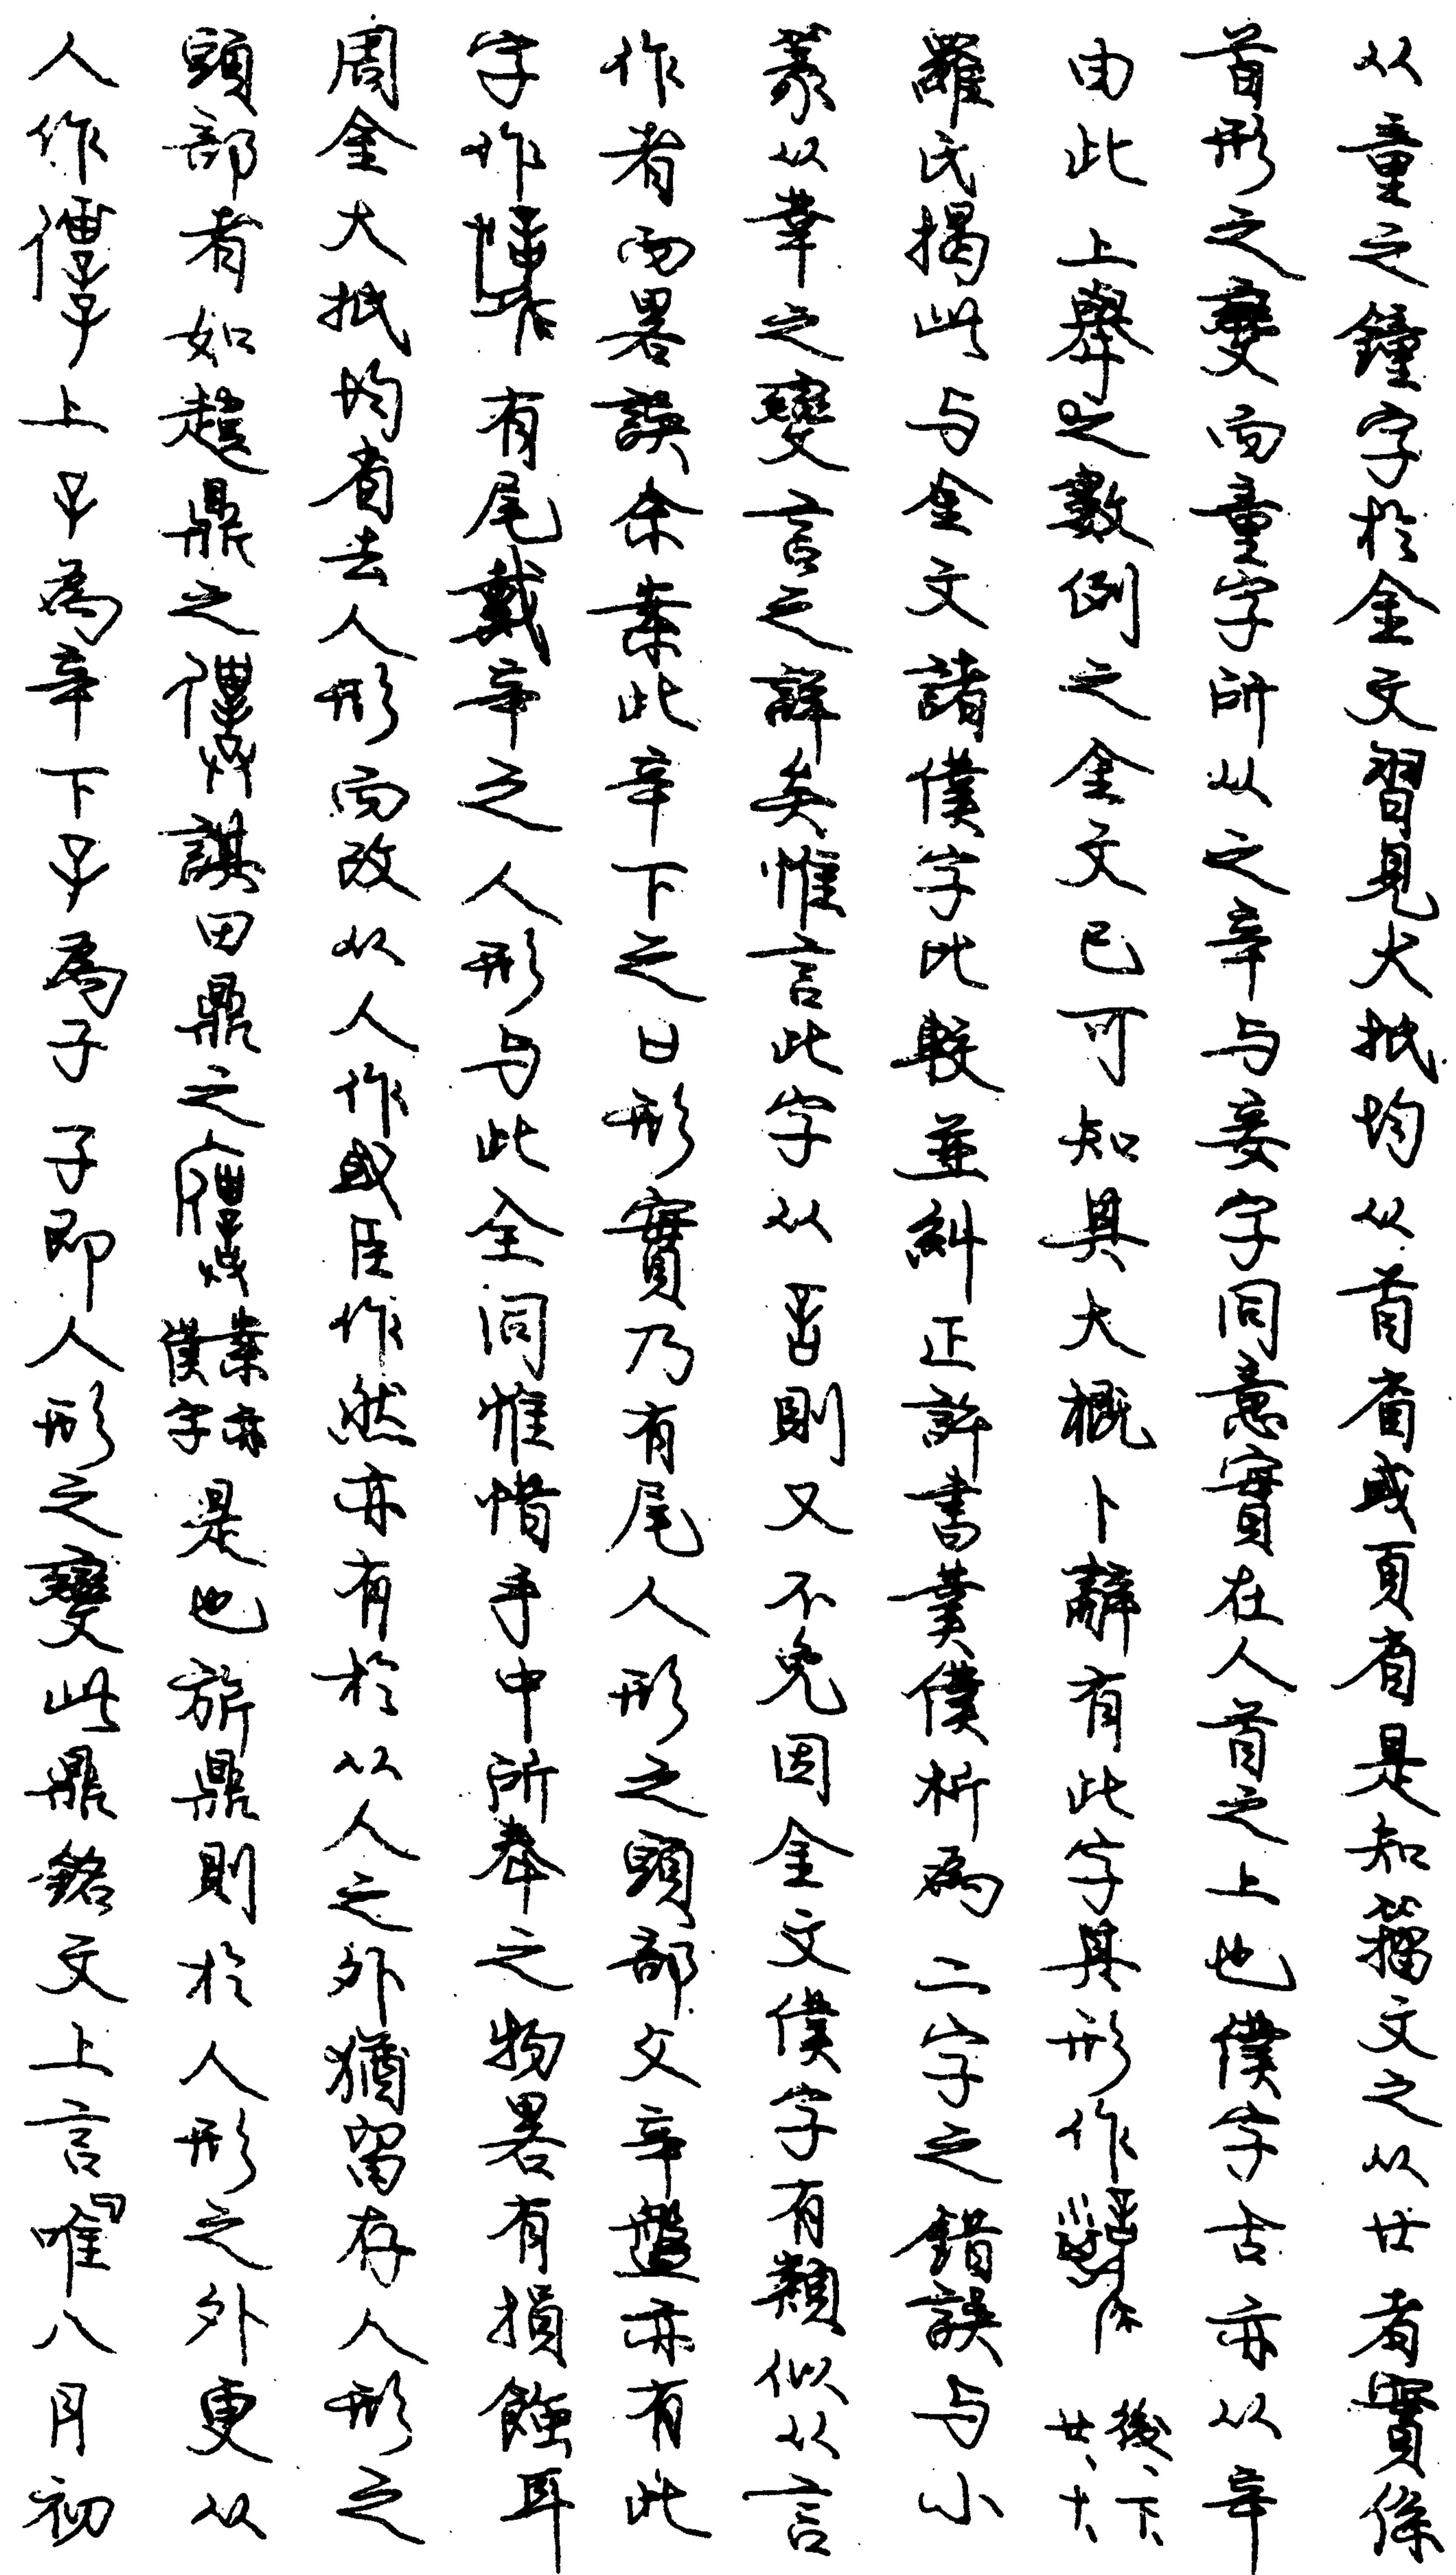 从童之鐘字於金文習見大抵均从首省或頁省是知籀文之从廿者實係
首形之變而童字所从之辛与妾字同意實在人首之上也僕字古亦从辛
由此上舉之數例之金文已可知其大概卜辭有此字其形作 後、下、廿、十、
羅氏揭此与金文諸僕字比較並糾正許書菐僕析為二字之錯誤与小
篆从菐之變言之詳矣惟言此字从 則又不免因金文僕字有類似从言
作者而畧誤余案此辛下之日形實乃有尾人形之頭部父辛盤亦有此
字作 有尾戴辛之人形与此全同惟惜手中所奉之物畧有損蝕耳
周金大抵均省去人形而改从人作或臣作然亦有於从人之外猶留存人形之
頭部者如趞鼎之 諆田鼎之 案亦僕字是也旂鼎則於人形之外更从
人作 上 為辛下 為子子即人形之變此鼎銘文上言『唯八月初